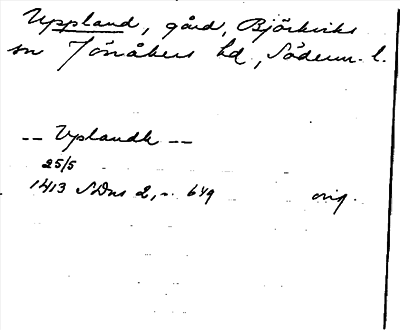 Uppland, gård, Björkviks
sn Jönåkers hd, Söderm. l.
-- Vplandh --
25/5
1413 SDns 2, n. 649 orig.